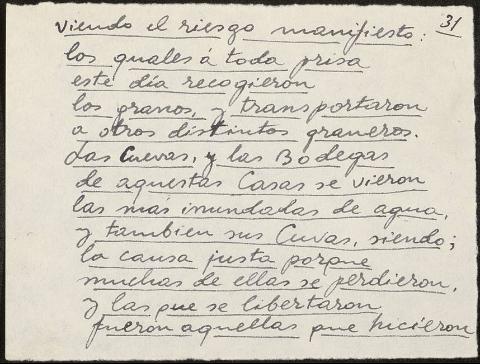 31
viendo el riesgo manifiesto:
los quales á toda prisa
este día recogieron
los granos, y transportaron
a otros distintos graneros.
Las Cuevas, y las Bodegas
de aquestas Casas se vieron
las más inundadas de agua,
y tambien sus Cuvas, siendo;
la causa justa porque
muchas de ellas se perdieron,
y las que se libertaron
fueron aquellas que hiciéron